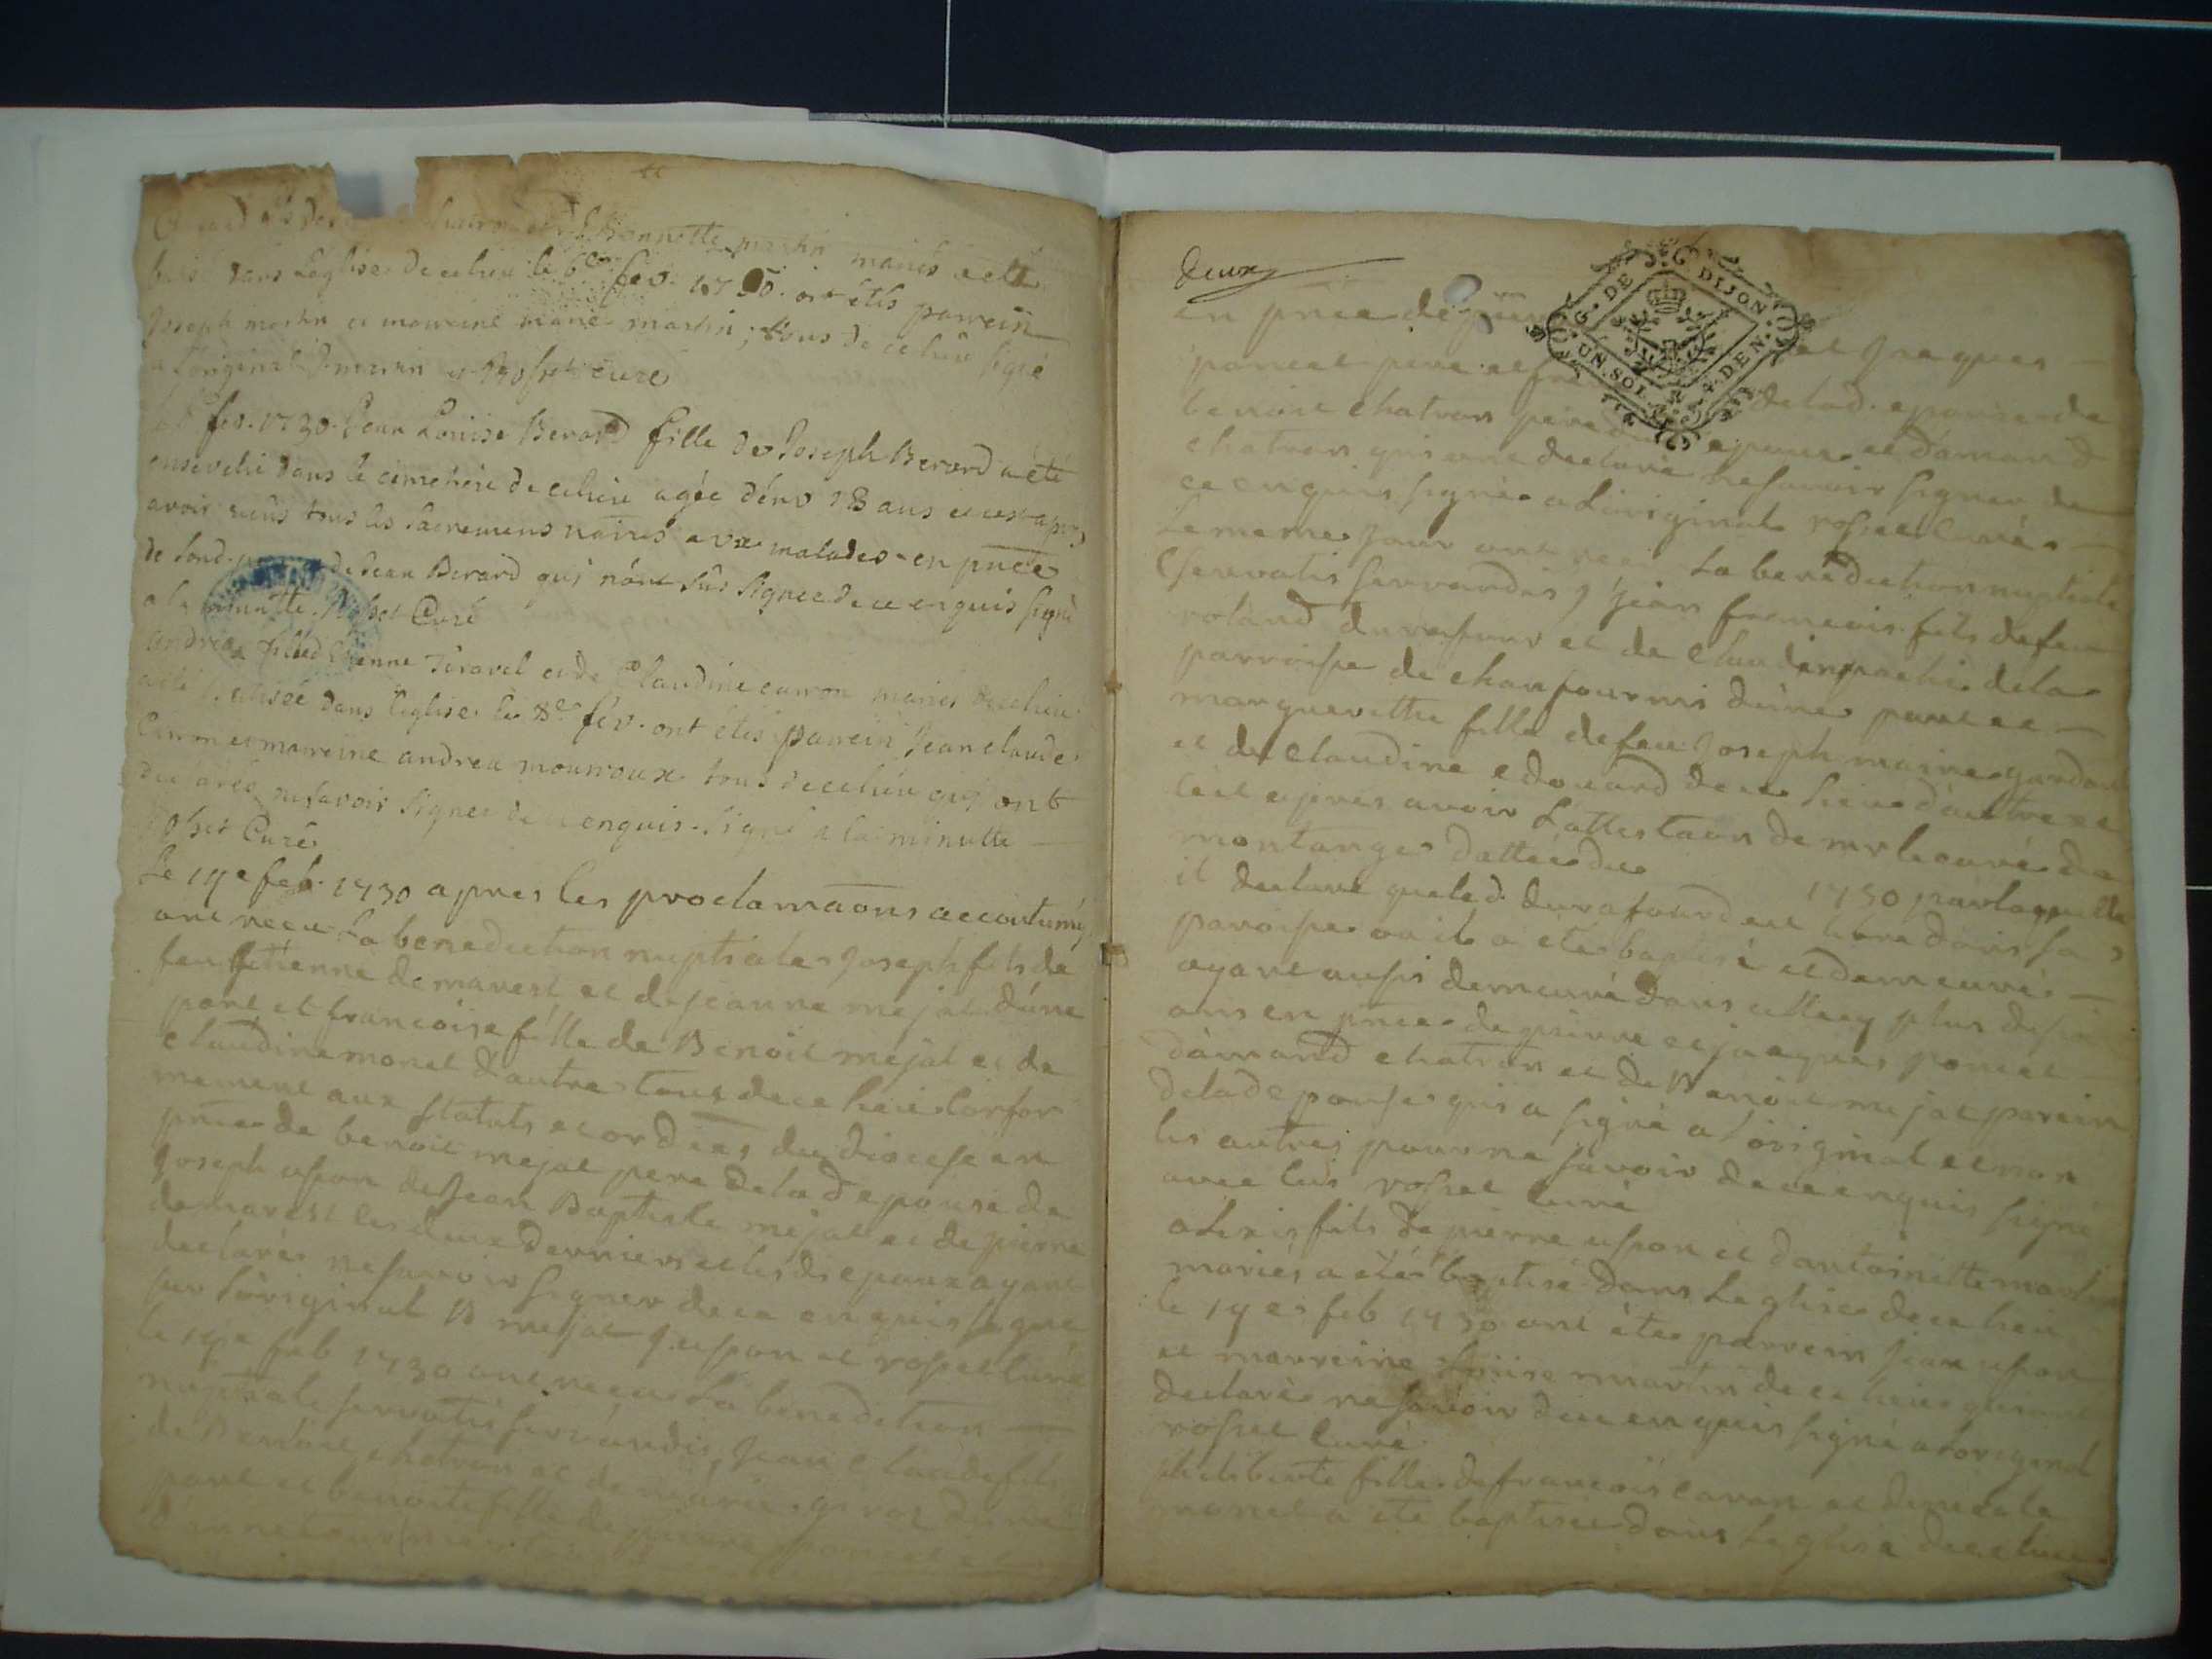 martin mariés a eté
dans Leglise de ce lieu le 6e fev. 1730. ont étés parrein
Joseph martin et marreine marie martin; tous de ce lieu signé
a l'original J martin et Rosset curé
fev. 1730. Jean Louise Berard fille de Joseph Berard a été
ensevelie dans le cimetiere de ce lieu agée d'env 18 ans et ce apres
avoir reçûs tous les sacremens naires aux malades en pnce
de sond. de Jean Berard qui n'ont sûs signer de ce enquis signé
a la minutte. Rosset Curé
andrea fille d'Etienne Tiravel et de Claudine carron mariés de ce lieu
a été batisée dans l'eglise le 8e fev. ont étés parrein Jean claude
Carron et marreine andrea mourroux tous de ce lieu qui ont
declarés ne savoir signer de ce enquis. signé a la minutte
Rosset Curé
Le 19e feb. 1730 apres les proclamaons accoutumés
ont reçu la benediction nuptiale Joseph fils de
feu Etienne demarest et de jeanne mejat d'une
part et francoise fille de Benoit mejat et de
claudine monet d'autre tous de ce lieu confor
mement aux statuts et ordces du diocese en
pnce de benoit mejat pere de lad epouse de
Joseph uson de Jean Baptiste mejat et de pierre
demarest les deux derniers et lesdis epoux ayant
declarés ne savoir signer de ce enquis signé
sur l'original B mejat J. et rosset curé
le 19e feb 1730 ont reçu la benediction
nuptiale servatis servandis, Jean Claude fils
de Benoit chatron et de marie d'une
part et benoite fille de pierre poncet et
deux
G. DE DIJON
UN. SOL 4. DEN.
en pnce de pierre et Jacques
poncet pere et de lad. epouse de
benoit chatron pere epoux et damand
chatron qui ont declaré ne savoir signer de
ce enquis signé a L'original rosset curé
Le meme jour ont recu La benediction nuptiale
(servatis servandis) jean francois fils de feu
roland durafour et de Claudine de la
parroisse de chanfourmi d'une part et
margueritte fille de feu Joseph maire
et de Claudine edouard de ce lieu d'autre et
ce apres avoir L'attestaon de mr le curé de
montange dattée du 1730 par laquelle
il declare que led. durafourd est libre dans sa
paroisse ou il a eté baptisé et demeuré
ayant aussi demeuré dans celle cy plus de six
ans en pnce de pierre et jacques poncet
d'amand chatron et de Benoit mejat parein
de lad epouse qui a signé a l'original et non
les autres pour ne savoir de ce enquis signé
avec lui rosset curé
alexis fils de pierre uson et d'antoinette martin
mariés a eté baptisé dans Leglise de ce lieu
le 19e feb 1730 ont étes parrein jean uson
et marreine Louise martin de ce lieu qui ont
declarés ne savoir de ce enquis signé a loriginal
rosset curé
philiberte fille de francois caron et de
monet a eté baptisée dans Leglise de ce lieu